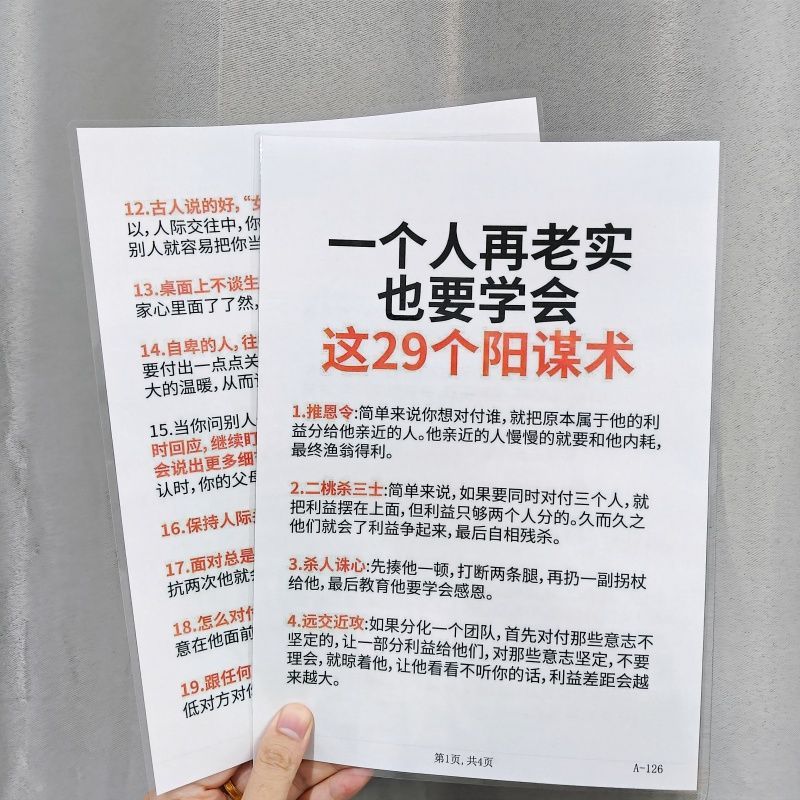 一个人再老实
也要学会
这29个阳谋术
1.推恩令:简单来说你想对付谁,就把原本属于他的利
益分给他亲近的人。他亲近的人慢慢的就要和他内耗,
最终渔翁得利。
2.二桃杀三士:简单来说,如果要同时对付三个人,就
把利益摆在上面,但利益只够两个人分的。久而久之
他们就会了利益争起来,最后自相残杀。
3.杀人诛心:先揍他一顿,打断两条腿,再扔一副拐杖
给他,最后教育他要学会感恩。
4.远交近攻:如果分化一个团队,首先对付那些意志不
坚定的,让一部分利益给他们,对那些意志坚定,不要
理会,就晾着他,让他看看不听你的话,利益差距会越
来越大。
第1页,共4页
A-126
12.古人说的好,“女
以,人际交往中,你
别人就容易把你当
13.桌面上不谈生
家心里面了了然,
14.自卑的人,往
要付出一点点关
大的温暖,从而
15.当你问别人
时回应,继续盯
会说出更多细
认时,你的父母
16.保持人际
17.面对总是
抗两次他就
18.怎么对付
意在他面前
19.跟任何
低对方对你